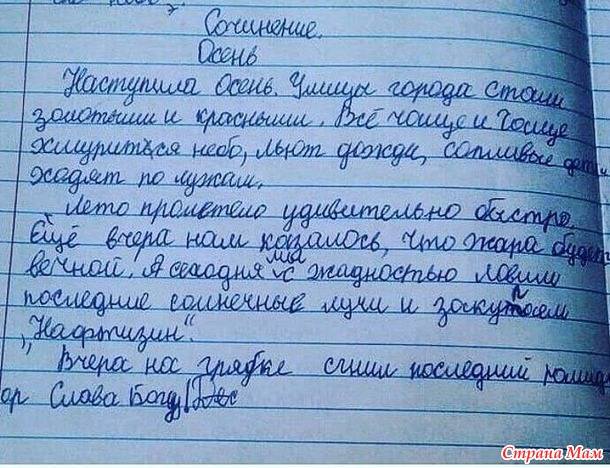 Сочинение.
Осень
Наступила Осень. Улицы города стали
золотыми и красными. Всё чаще и чаще
хмуриться небо, льют дожди, сопливые дети
ходят по лужам.
Лето пролетело удивительно быстро.
Ещё вчера нам казалось, что жара будет
вечной. А сегодня мы с жадностью ловим
последние солнечные лучи и закупаем
„Нафтизин".
Вчера на грядке сгнил последний помид
ор Слава Богу!
Страна Мам